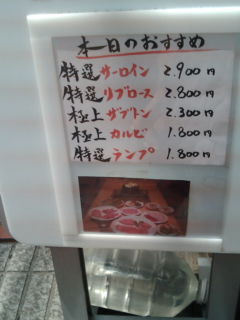 本日のおすすめ
特選サーロイン 2.900円
特選リブロース 2.800円
極上ザブトン 2.300円
極上カルビ 1.800円
特選ランプ 1.800円